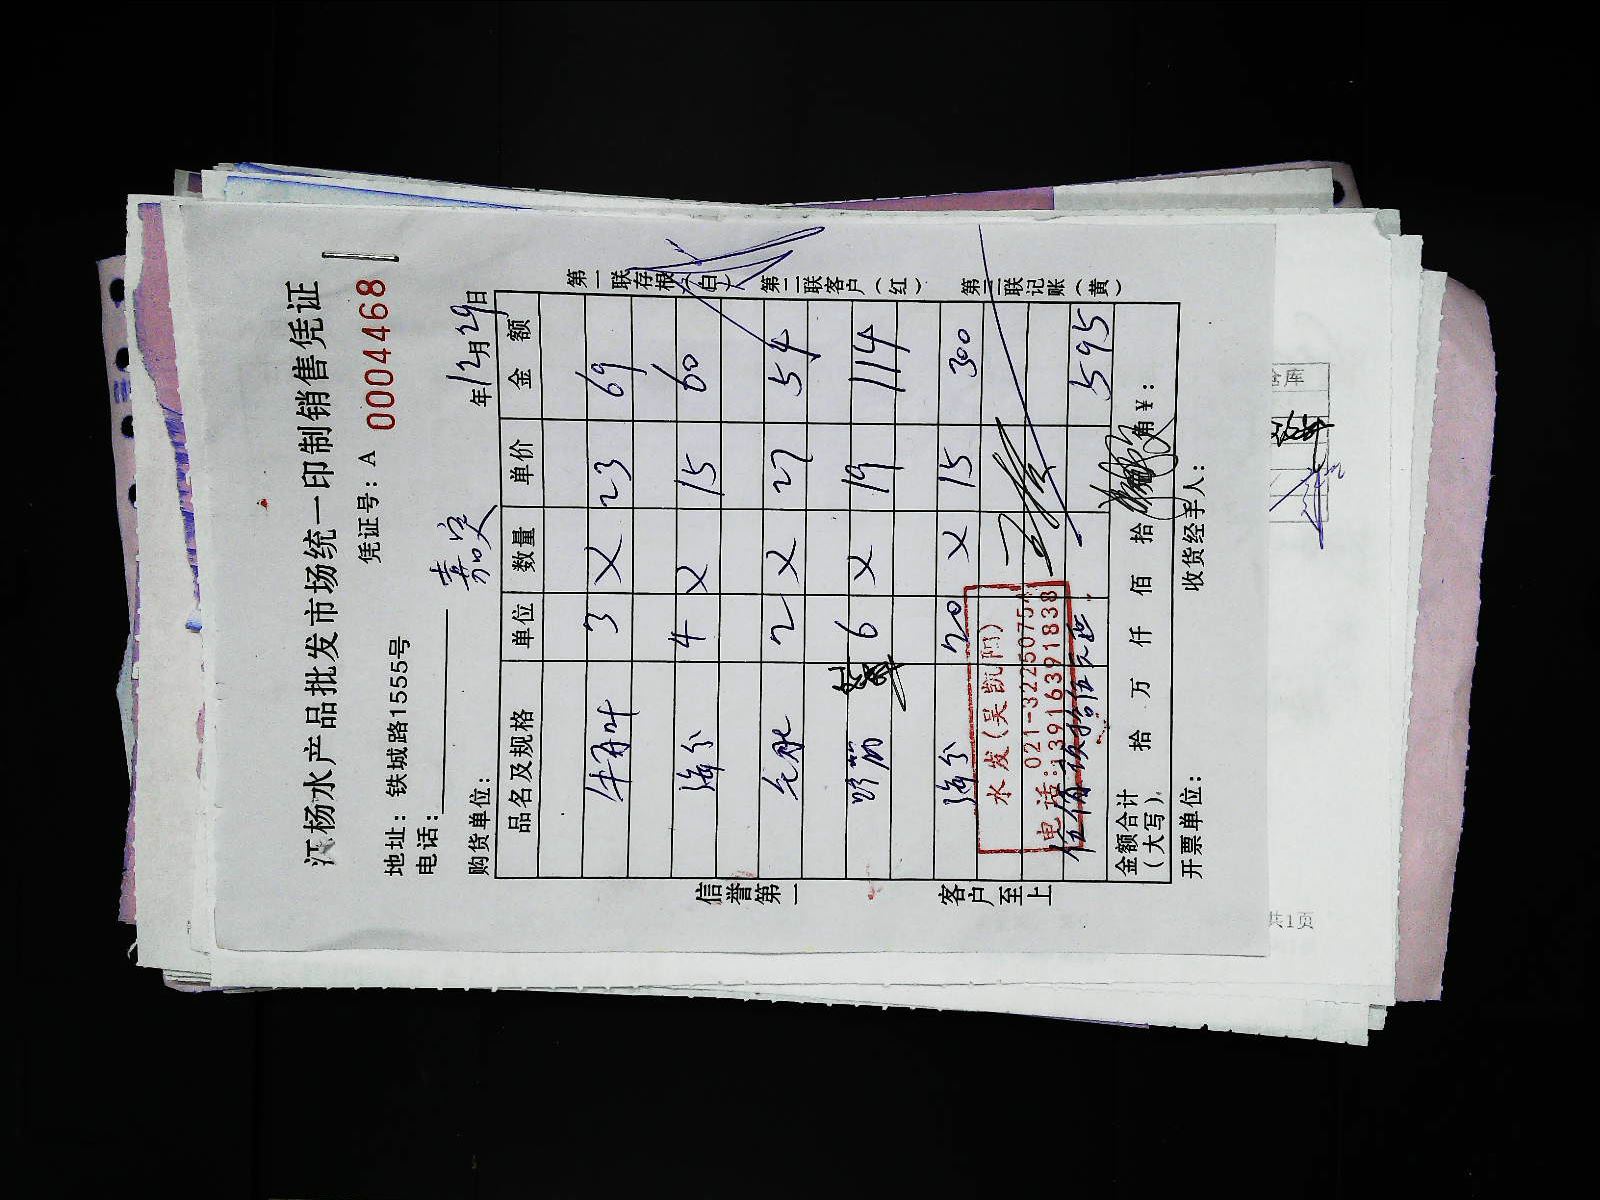 江杨水产品批发市场统一印制销售凭证
凭证号：A 0004468
地址：铁城路1555号
电话：
购货单位： 嘉定 年12月29日
品名及规格 单位 数量 单价 金额
3 乂 23 69
4 乂 15 60
2 乂 27 54
6 乂 19 114
20 乂 15 300
水发(吴凯阿)
021-32250754
电话:13916391838
595
金额合计（大写） 拾 万 仟 佰 拾 角 ¥：
开票单位： 收货经手人：
信誉第一 客户至上
第一联存根（白） 第二联客户（红） 第三联记账（黄）
仓库
共1页